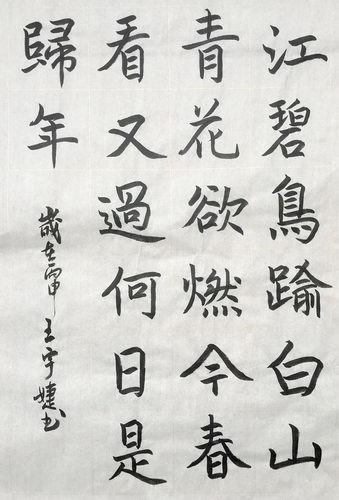 江碧鳥踰白山
青花欲燃今春
看又過何日是
歸年
歲在 王宇婕書